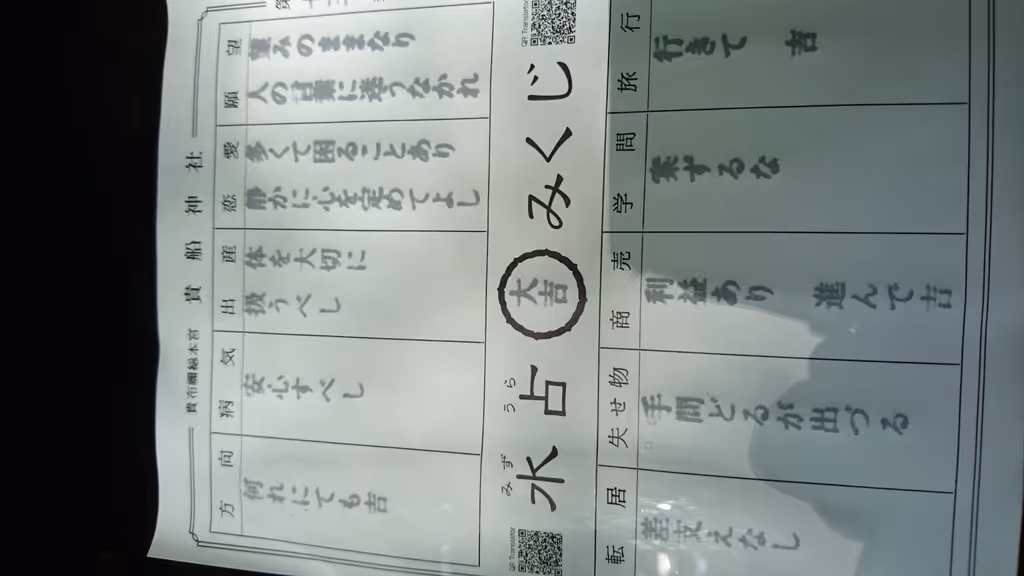 貴布禰総本宮 貴船神社
第十三
願望
望みのままなり
人の言葉に迷うなかれ
恋愛
多くて困ることあり
静かに心を定めてよし
出産
体を大切に
扱うべし
病気
安心すべし
方向
何れにても吉
QR Translator
みず うら
水占 大吉 みくじ
QR Translator
旅行
行きて 吉
学問
案ずるな
商売
利益あり 進んで吉
失せ物
手間どるが出づる
転居
差支えなし